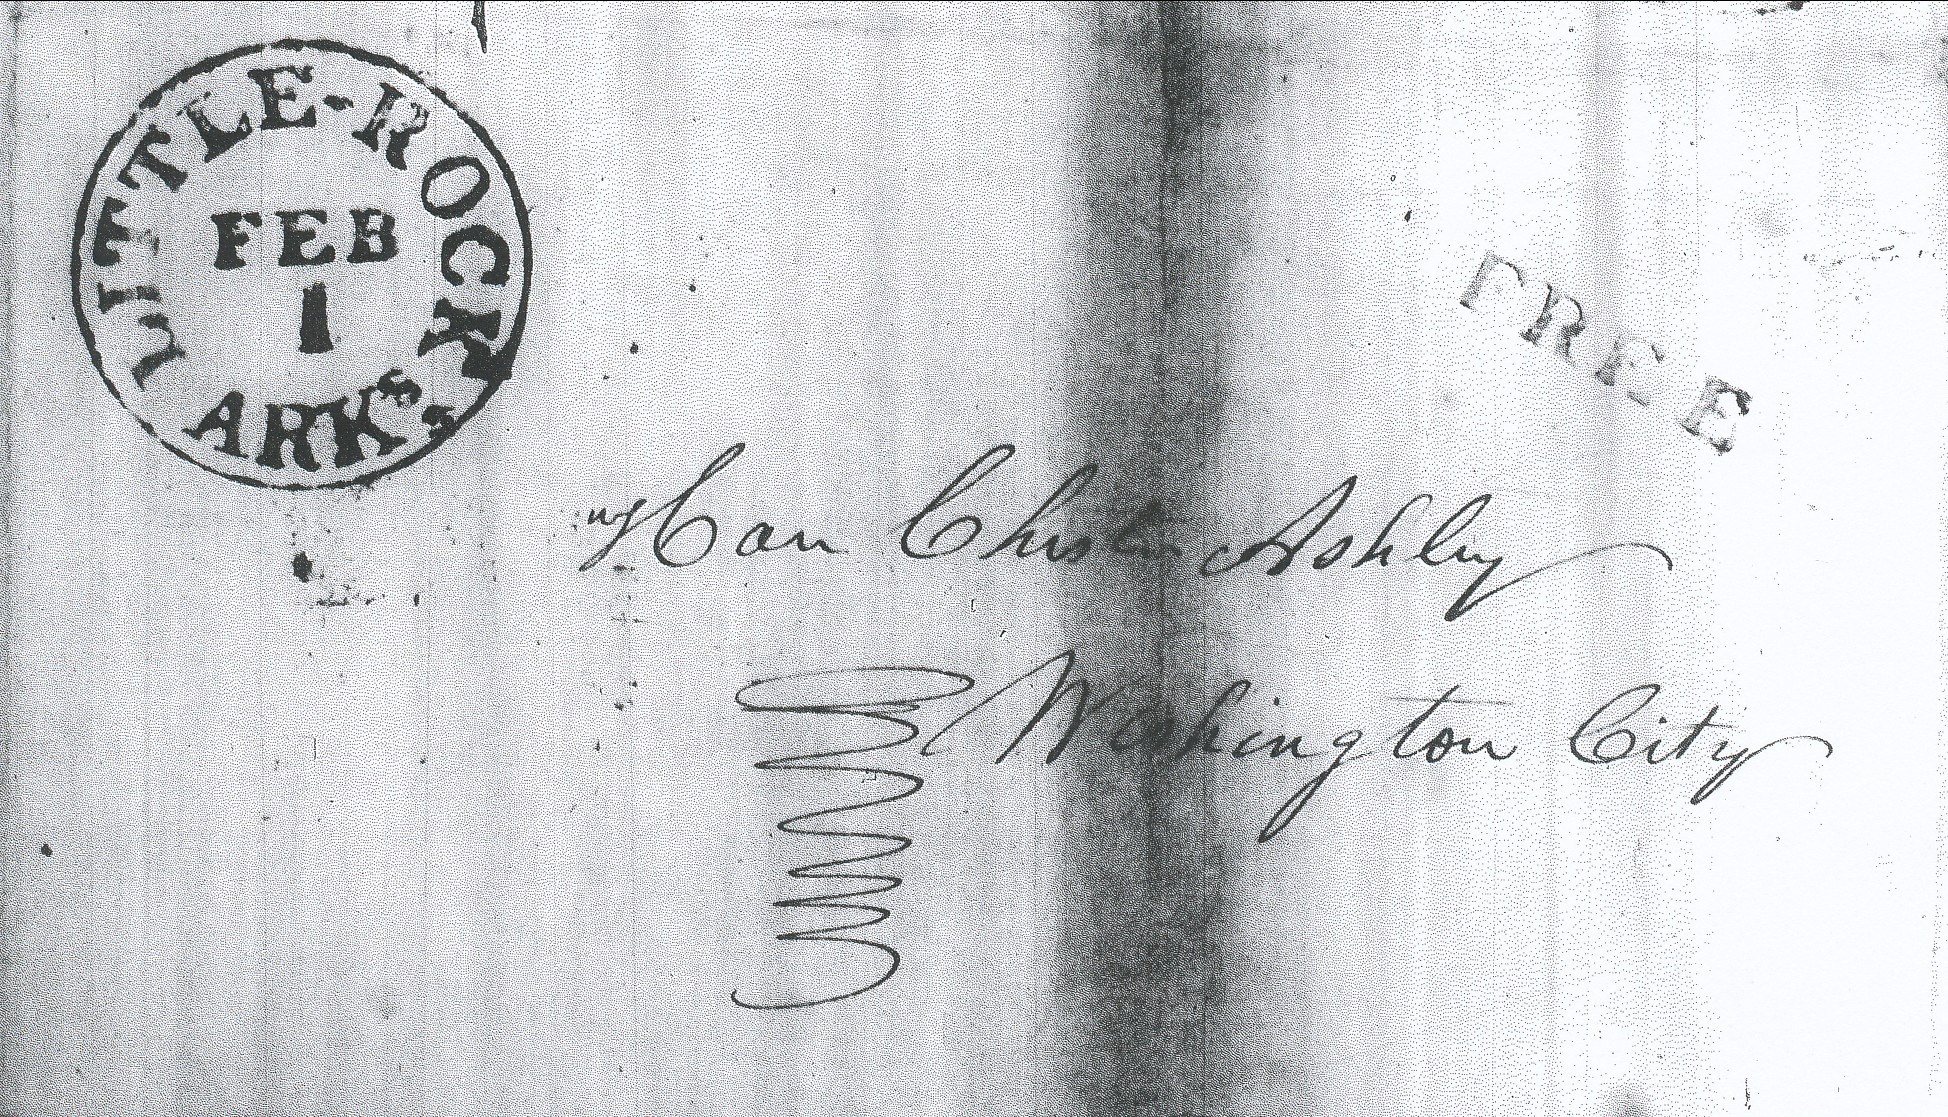 LITTLE-ROCK
FEB
1
ARKS
FREE
Hon Chester Ashley
Washington City